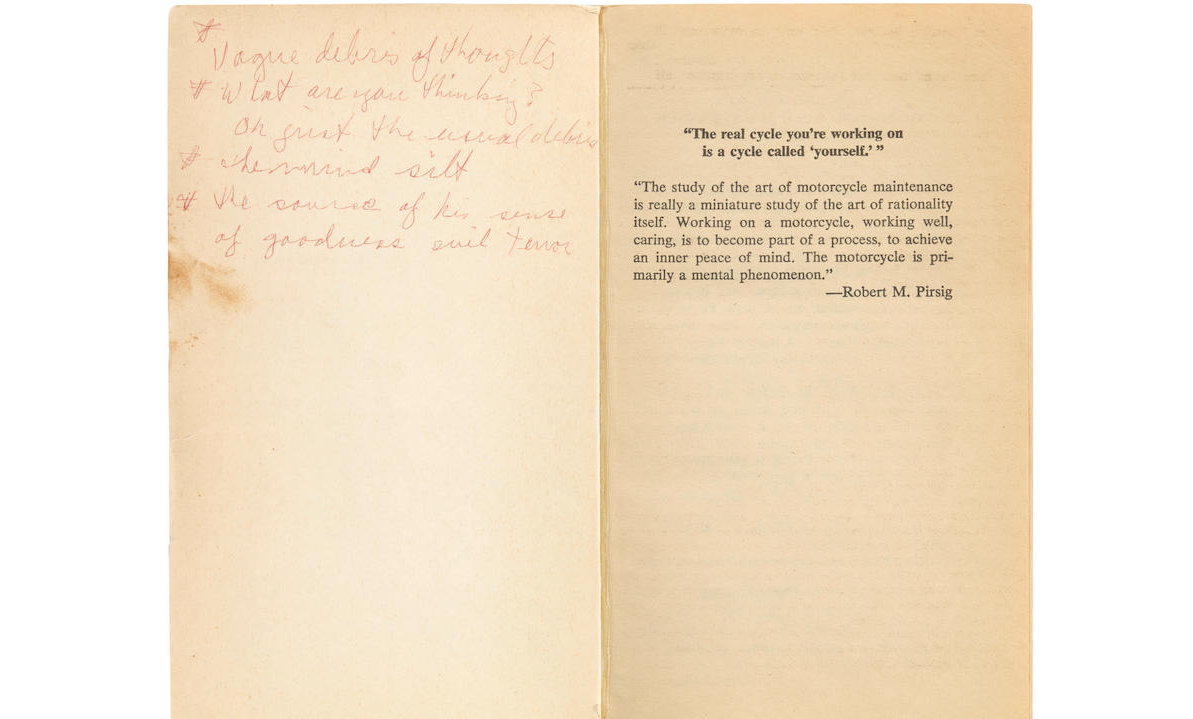 # Vague debris of thoughts
# What are you thinking?
Oh just the usual debris
# the mind silt
# the source of his sense
of goodness evil terror
“The real cycle you’re working on
is a cycle called ‘yourself.’ ”
“The study of the art of motorcycle maintenance
is really a miniature study of the art of rationality
itself. Working on a motorcycle, working well,
caring, is to become part of a process, to achieve
an inner peace of mind. The motorcycle is pri-
marily a mental phenomenon.”
—Robert M. Pirsig